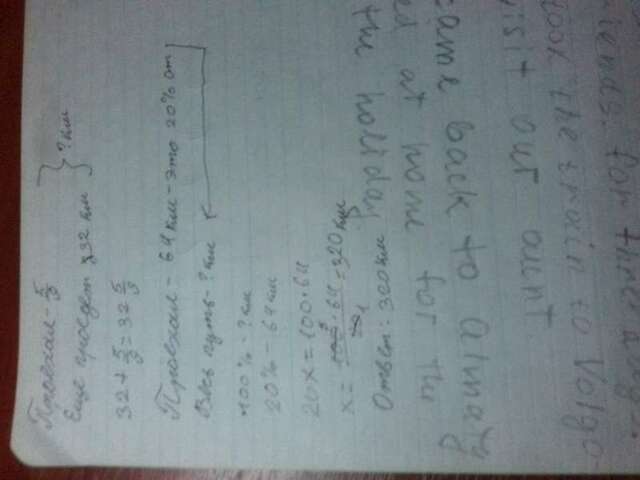 Проехал - 5/9
Еще проедет 32 км } ? км
32 + 5/9 = 32 5/9
Проехал - 64 км - это 20% от
Весь путь - ? км
100% - ? км
20% - 64 км
20x = 100 · 64
x = 100 5 · 64 / 20 1 = 320 км
Ответ: 320 км
for three days.
took the train to Volgo
visit our aunt
came back to almaty
at home for the
the holiday